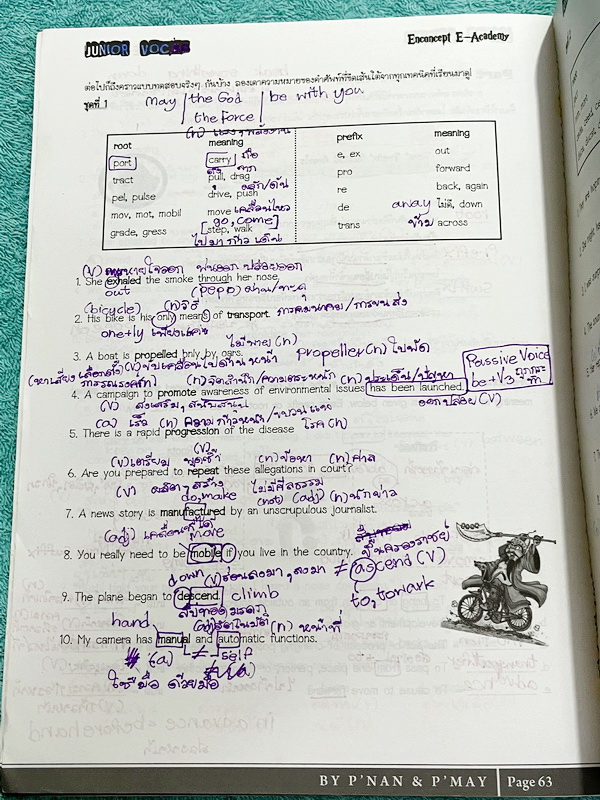 JUNIOR VOCAB
Enconcept E-Academy
ต่อไปก็ถึงคราวแบบทดสอบจริงๆ กันบ้าง ลองเดาความหมายของคำศัพท์ที่ขีดเส้นใต้จากทุกเทคนิคที่เรียนมาดู!
ชุดที่ 1
May the God be with you
the Force
root meaning prefix meaning
port carry ถือ e, ex out
tract pull, drag pro forward
pel, pulse drive, push ผลัก/ดัน re back, again
mov, mot, mobil move เคลื่อนไหว de away ไม่ดี, down
[go, come]
grade, gress step, walk trans ข้าม across
(v) หายใจออก พ่นออก ปล่อยออก
1. She exhaled the smoke through her nose.
out (prep) ผ่าน/ทะลุ
(bicycle) (n) วิธี
2. His bike is his only means of transport. การคมนาคม/การขนส่ง
one+ly
ไม้พาย (n) propeller (n) ใบพัด
3. A boat is propelled only by oars.
Passive Voice
be + V3 ถูกกระทำ
(n) ประเด็น/ปัญหา
4. A campaign to promote awareness of environmental issues has been launched.
ออกปล่อย (v)
(a) เร็ว (n) ความก้าวหน้า
5. There is a rapid progression of the disease โรค (n)
(v)
(v) เตรียม พูดซ้ำ (n) ข้อหา (n) ศาล
6. Are you prepared to repeat these allegations in court?
(v) ผลิต, สร้าง ไม่มีศีลธรรม
do, make (not) (adj) (n) นักข่าว
7. A news story is manufactured by an unscrupulous journalist.
(adj) เคลื่อนที่ได้
move
8. You really need to be mobile if you live in the country.
down (v) ร่อนลงมา, ลงมา ≠ ascend (v)
9. The plane began to descend. climb
to, towark
hand (adj) อัตโนมัติ (n) หน้าที่
10. My camera has manual and automatic functions.
(a) ≠ self
ใช้มือ ด้วยมือ
BY P'NAN & P'MAY Page 63